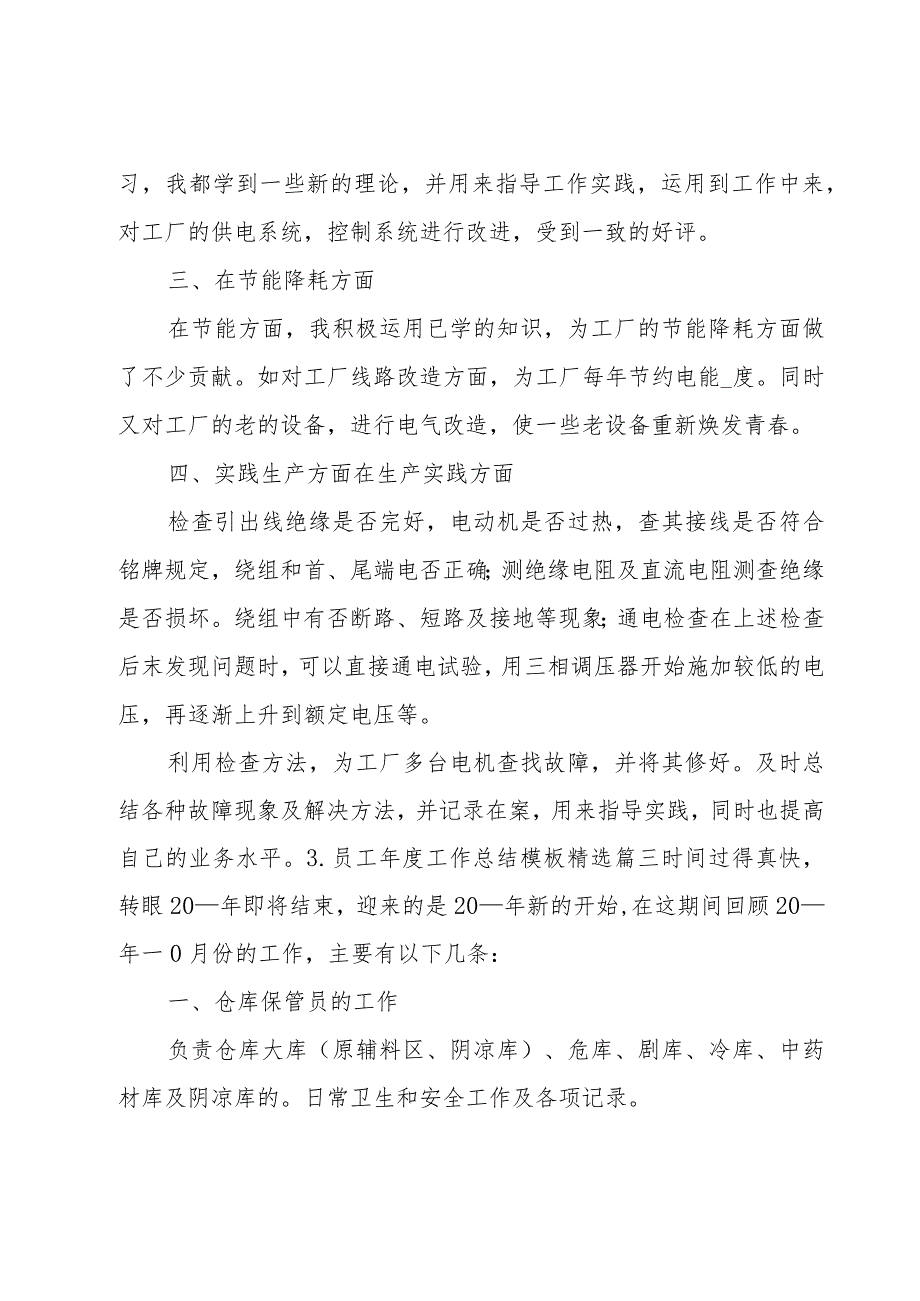 习，我都学到一些新的理论，并用来指导工作实践，运用到工作中来，
对工厂的供电系统，控制系统进行改进，受到一致的好评。
三、在节能降耗方面
在节能方面，我积极运用已学的知识，为工厂的节能降耗方面做
了不少贡献。如对工厂线路改造方面，为工厂每年节约电能_度。同时
又对工厂的老的设备，进行电气改造，使一些老设备重新焕发青春。
四、实践生产方面在生产实践方面
检查引出线绝缘是否完好，电动机是否过热，查其接线是否符合
铭牌规定，绕组和首、尾端电否正确；测绝缘电阻及直流电阻测查绝缘
是否损坏。绕组中有否断路、短路及接地等现象；通电检查在上述检查
后末发现问题时，可以直接通电试验，用三相调压器开始施加较低的电
压，再逐渐上升到额定电压等。
利用检查方法，为工厂多台电机查找故障，并将其修好。及时总
结各种故障现象及解决方法，并记录在案，用来指导实践，同时也提高
自己的业务水平。3.员工年度工作总结模板精选篇三时间过得真快，
转眼20—年即将结束，迎来的是20—年新的开始,在这期间回顾20—
年一0月份的工作，主要有以下几条：
一、仓库保管员的工作
负责仓库大库（原辅料区、阴凉库）、危库、剧库、冷库、中药
材库及阴凉库的。日常卫生和安全工作及各项记录。